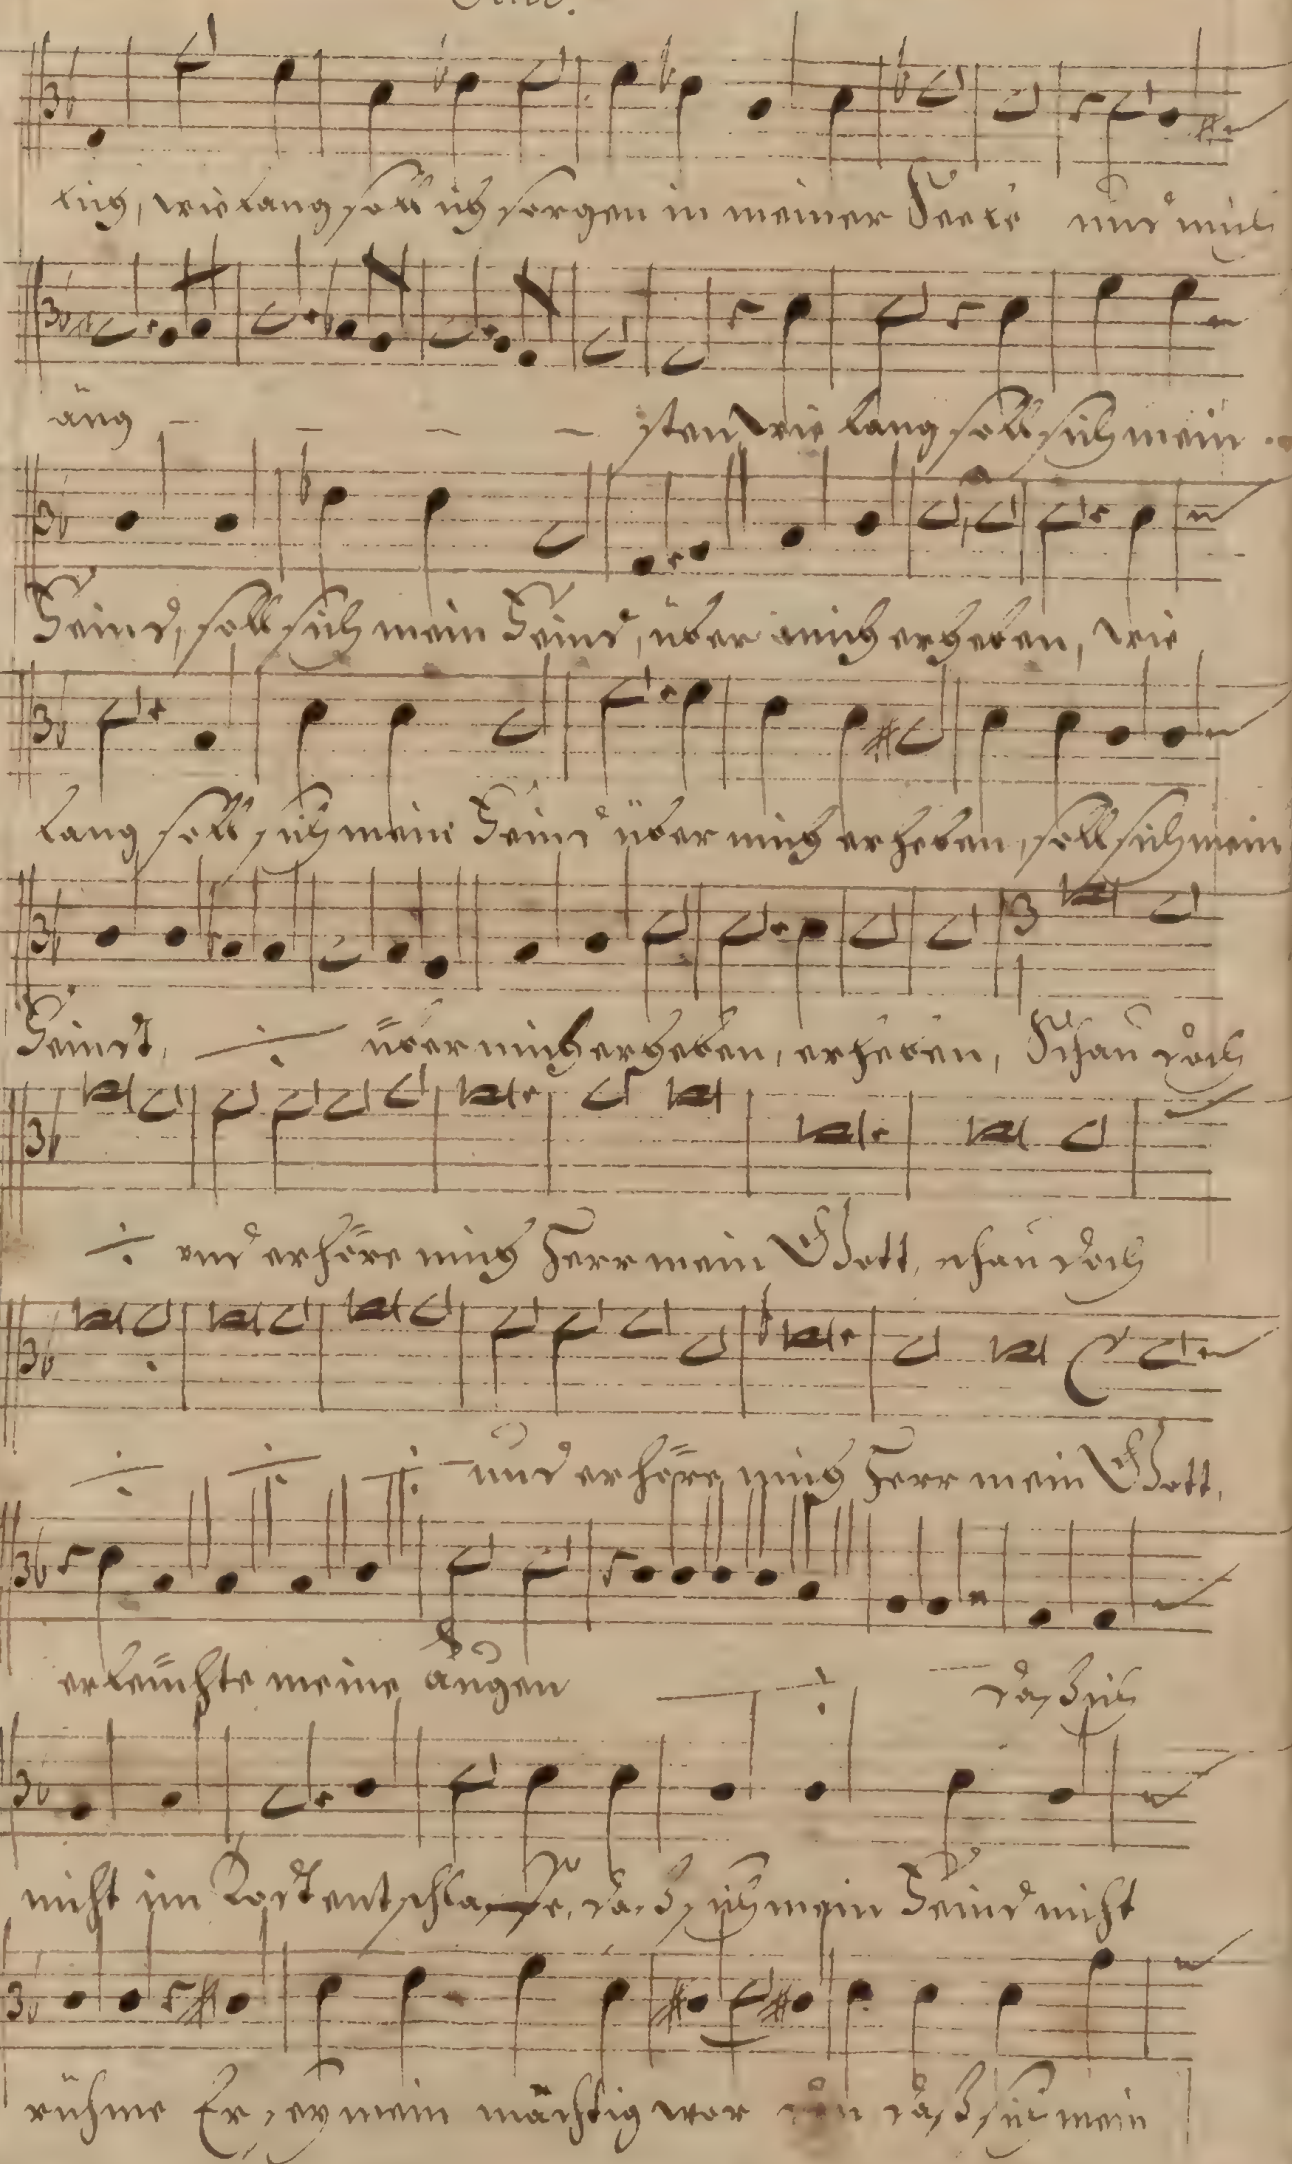 lich, wie lang soll ich sorgen in meiner Seele und mich
äng - - - - sten wie lang soll sich mein
Feind, soll sich mein Feind, über mich erheben, wie
lang soll sich mein Feind über mich erheben, soll sich mein
Feindt, ÷ über mich erheben, erheben, Schau doch
÷ und erhöre mich Herr mein Gott, schau doch
÷ ÷ ÷ und erhöre mich Herr mein Gott,
erleuchte meine augen ÷ daß ich
nicht im Todt entschlaffe, daß sich mein Feind nicht
rühme Er sey mein mächtig wor den daß sich mein